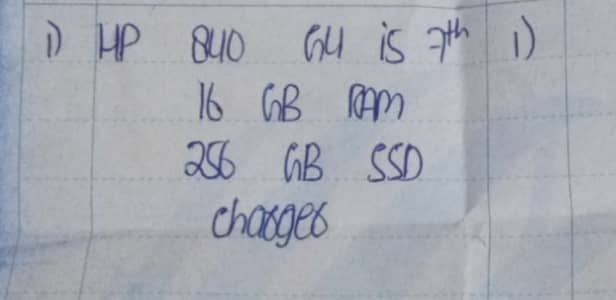 1) HP 840 G4 i5 7th 1)
16 GB RAM
256 GB SSD
charger